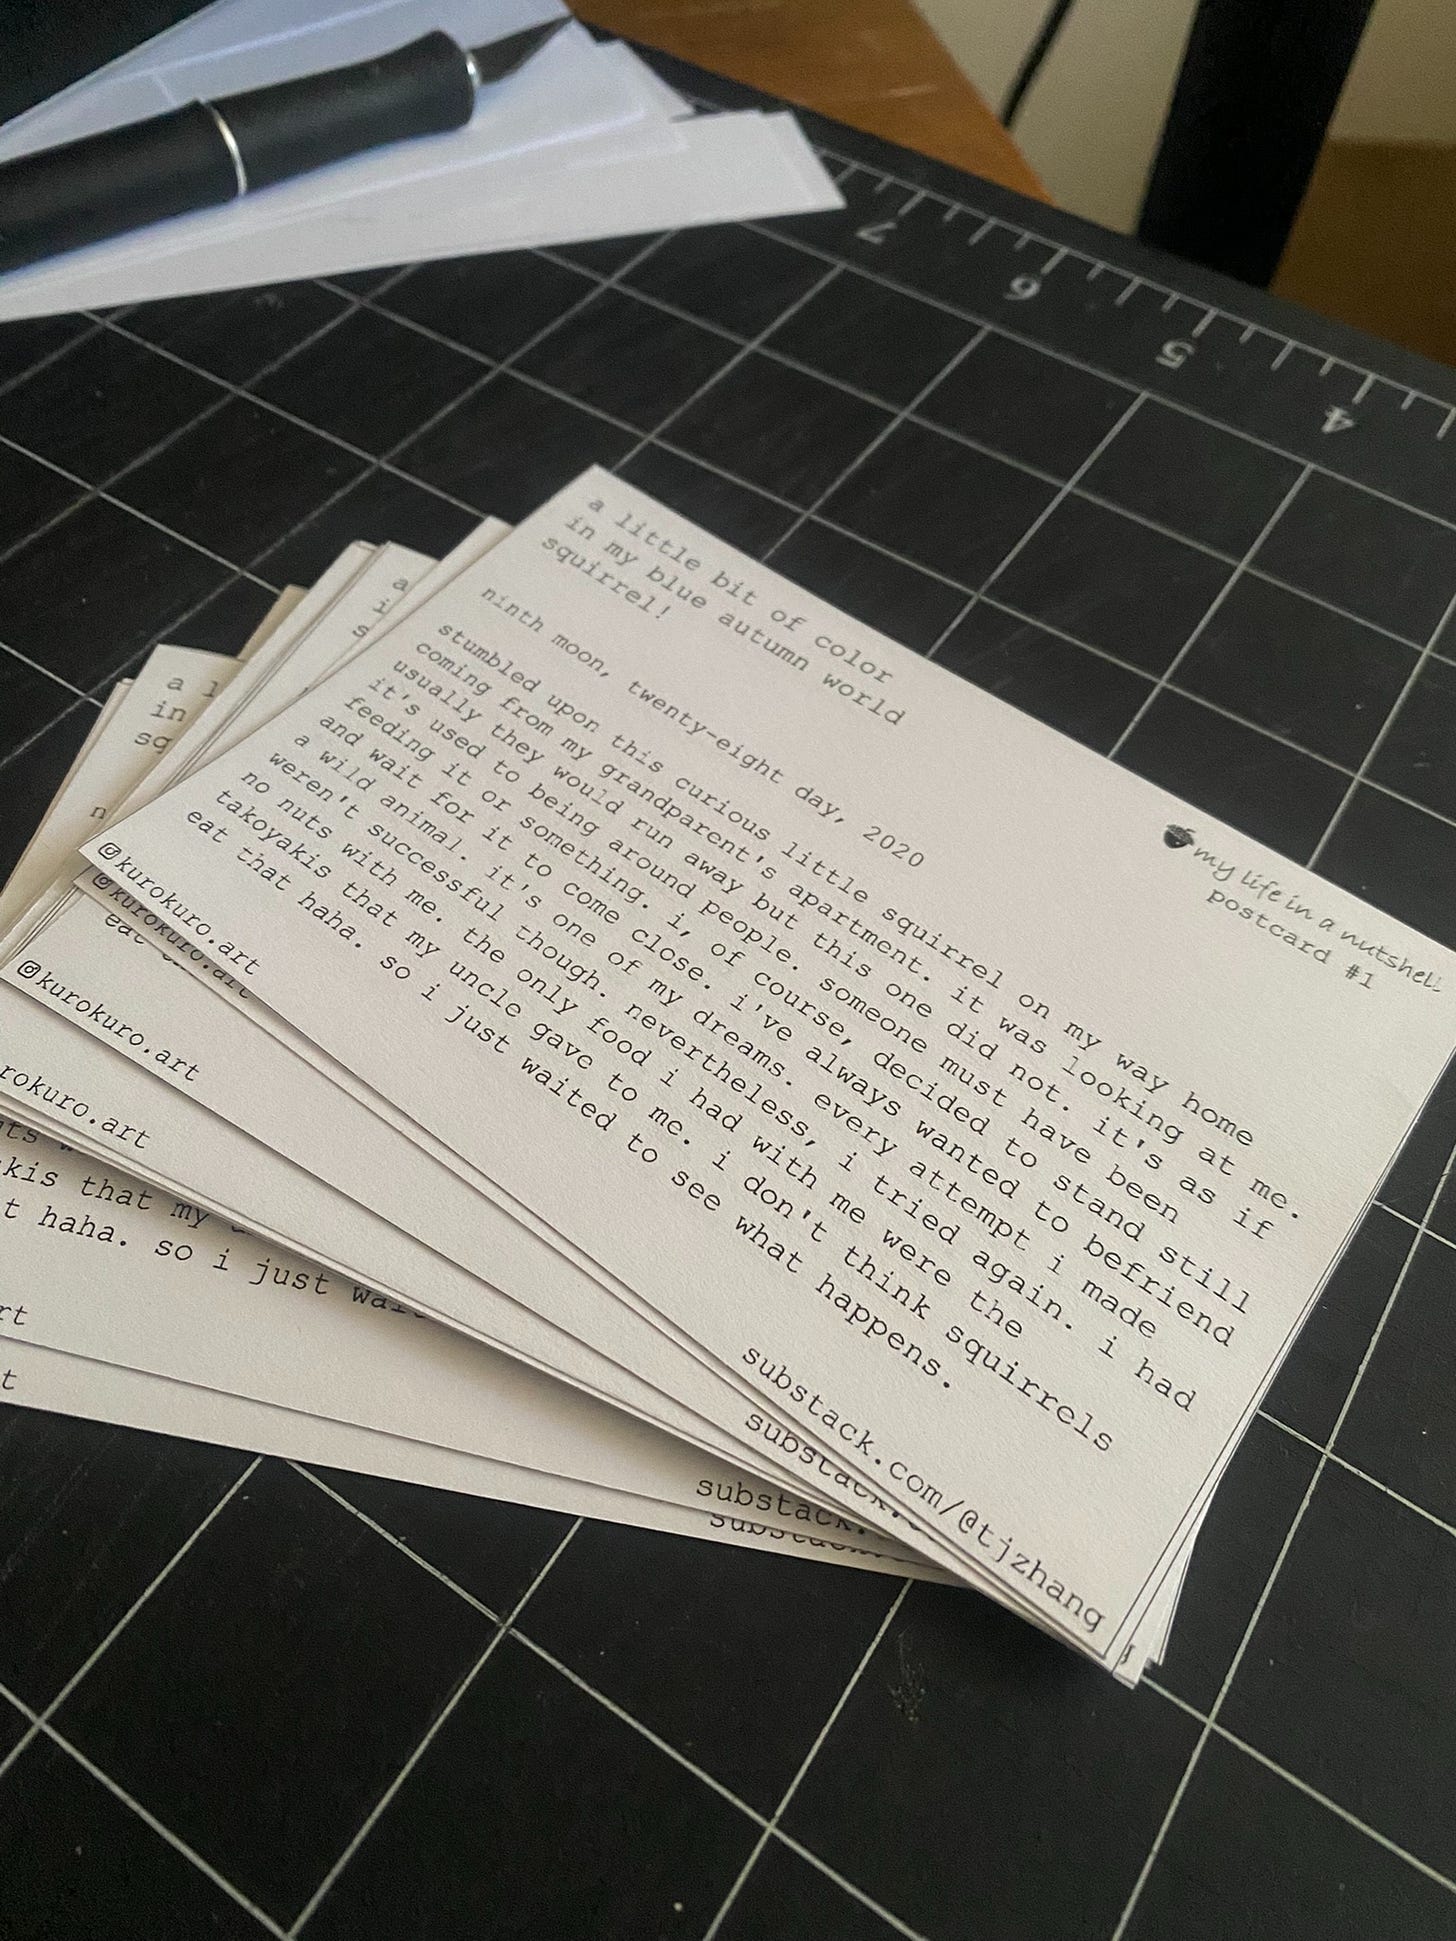 7
6
5
4
a little bit of color
in my blue autumn world
squirrel!
my life in a nutshell
postcard #1
ninth moon, twenty-eight day, 2020
stumbled upon this curious little squirrel on my way home
coming from my grandparent's apartment. it was looking at me.
usually they would run away but this one did not. it's as if
it's used to being around people. someone must have been
feeding it or something. i, of course, decided to stand still
and wait for it to come close. i've always wanted to befriend
a wild animal. it's one of my dreams. every attempt i made
weren't successful though. nevertheless, i tried again. i had
no nuts with me. the only food i had with me were the
takoyakis that my uncle gave to me. i don't think squirrels
eat that haha. so i just waited to see what happens.
@kurokuro.art
substack.com/@tjzhang
a
i
s
a l
in
sq
n
@kurokuro.art
eat
@kurokuro.art
rokuro.art
kis that my
t haha. so i just wai
rt
t
substack.
substack.